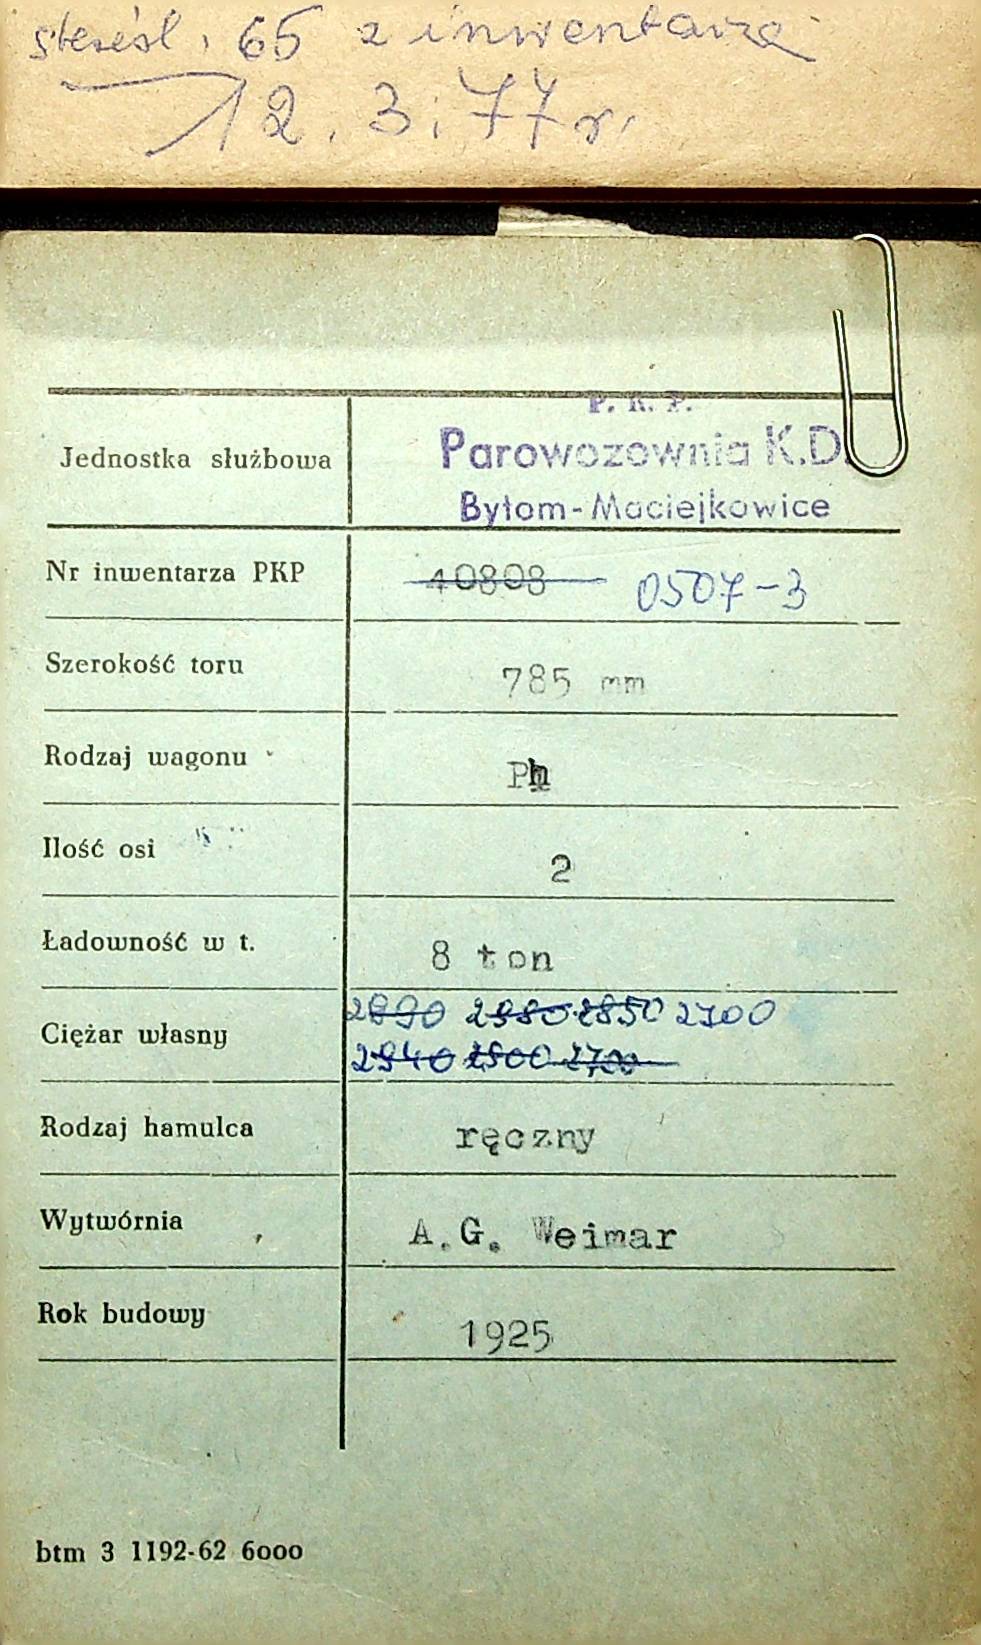 65 z inwentarza
12.3.77r.
P. K. P.
Parowozownia K.D.
Jednostka służbowa
Bytom-Maciejkowice
Nr inwentarza PKP 40808 0507-3
Szerokość toru 785 mm
Rodzaj wagonu Ph
Ilość osi 2
Ładowność w t. 8 ton
2890 2980 2850 2700
Ciężar własny
2940 2900 2700
Rodzaj hamulca ręczny
Wytwórnia A.G. Weimar
Rok budowy 1925
btm 3 1192-62 6000